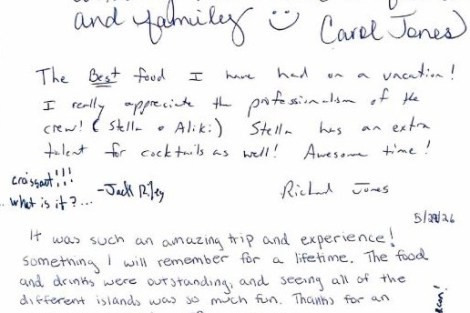 and family ☺ Carol Jones
The Best food I have had on a vacation!
I really appreciate the professionalism of the
crew! (Stella & Aliki) Stella has an extra
talent for cocktails as well! Awesome time!
croissant!!!
what is it?... -Jack Riley
Richard Jones
5/29/26
It was such an amazing trip and experience!
Something I will remember for a lifetime. The food
and drinks were outstanding, and seeing all of the
different islands was so much fun. Thanks for an